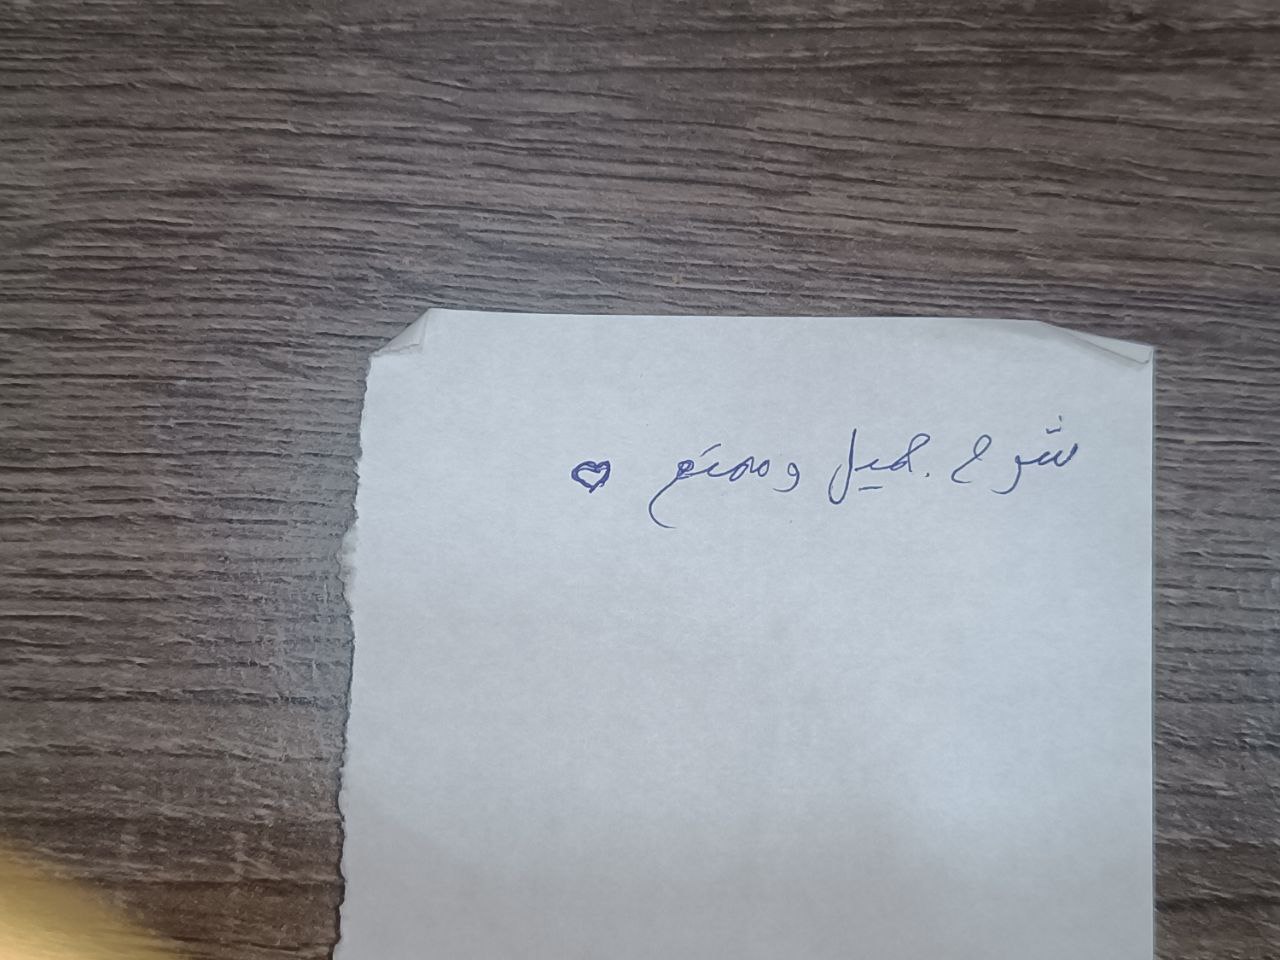 شرح جميل وممتع ♥